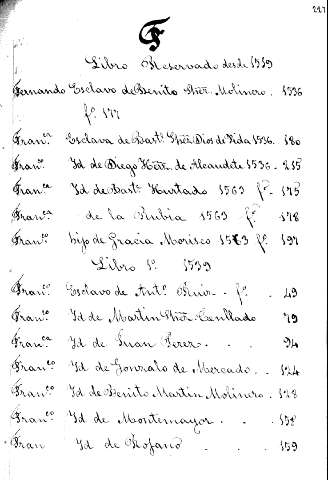 F
Libro Reservado desde 1539
Fernando Esclavo de Benito Sher. Molinero. 1536
fº 177
Franca Esclava de Bart. Sher. Dios de Vida 1536. 180
Franco. Id de Diego Hern. de Alcaudite 1536 - 215
Franca Id de Bart. Hurtado 1563 fº - 175
Franca de la Rubia 1563 fº 178
Franco. hijo de Gracia Morisco 1563 fº. 197
Libro 1º. 1539
Franco. Esclavo de Antº Ruiz - fº. 49
Franco Id de Martin Sher 79
Franca Id de Juan Perez 94
Franco. Id de Gonzalo de Mercado 124
Franco. Id de Benito Martin Molinero. 128
Franco Id de Montemayor 138
Fran Id de 159